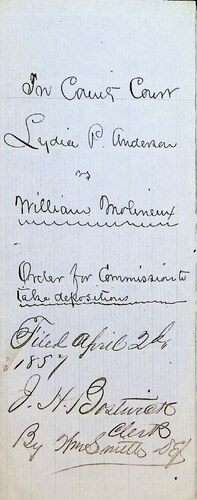 In Court Court
Lydia P. Anderson
vs
William Molineux
Order for Commission to
take depositions
Filed April 2d,
1857
J. H. Bostwick
Clerk
By Wm Smith Dy